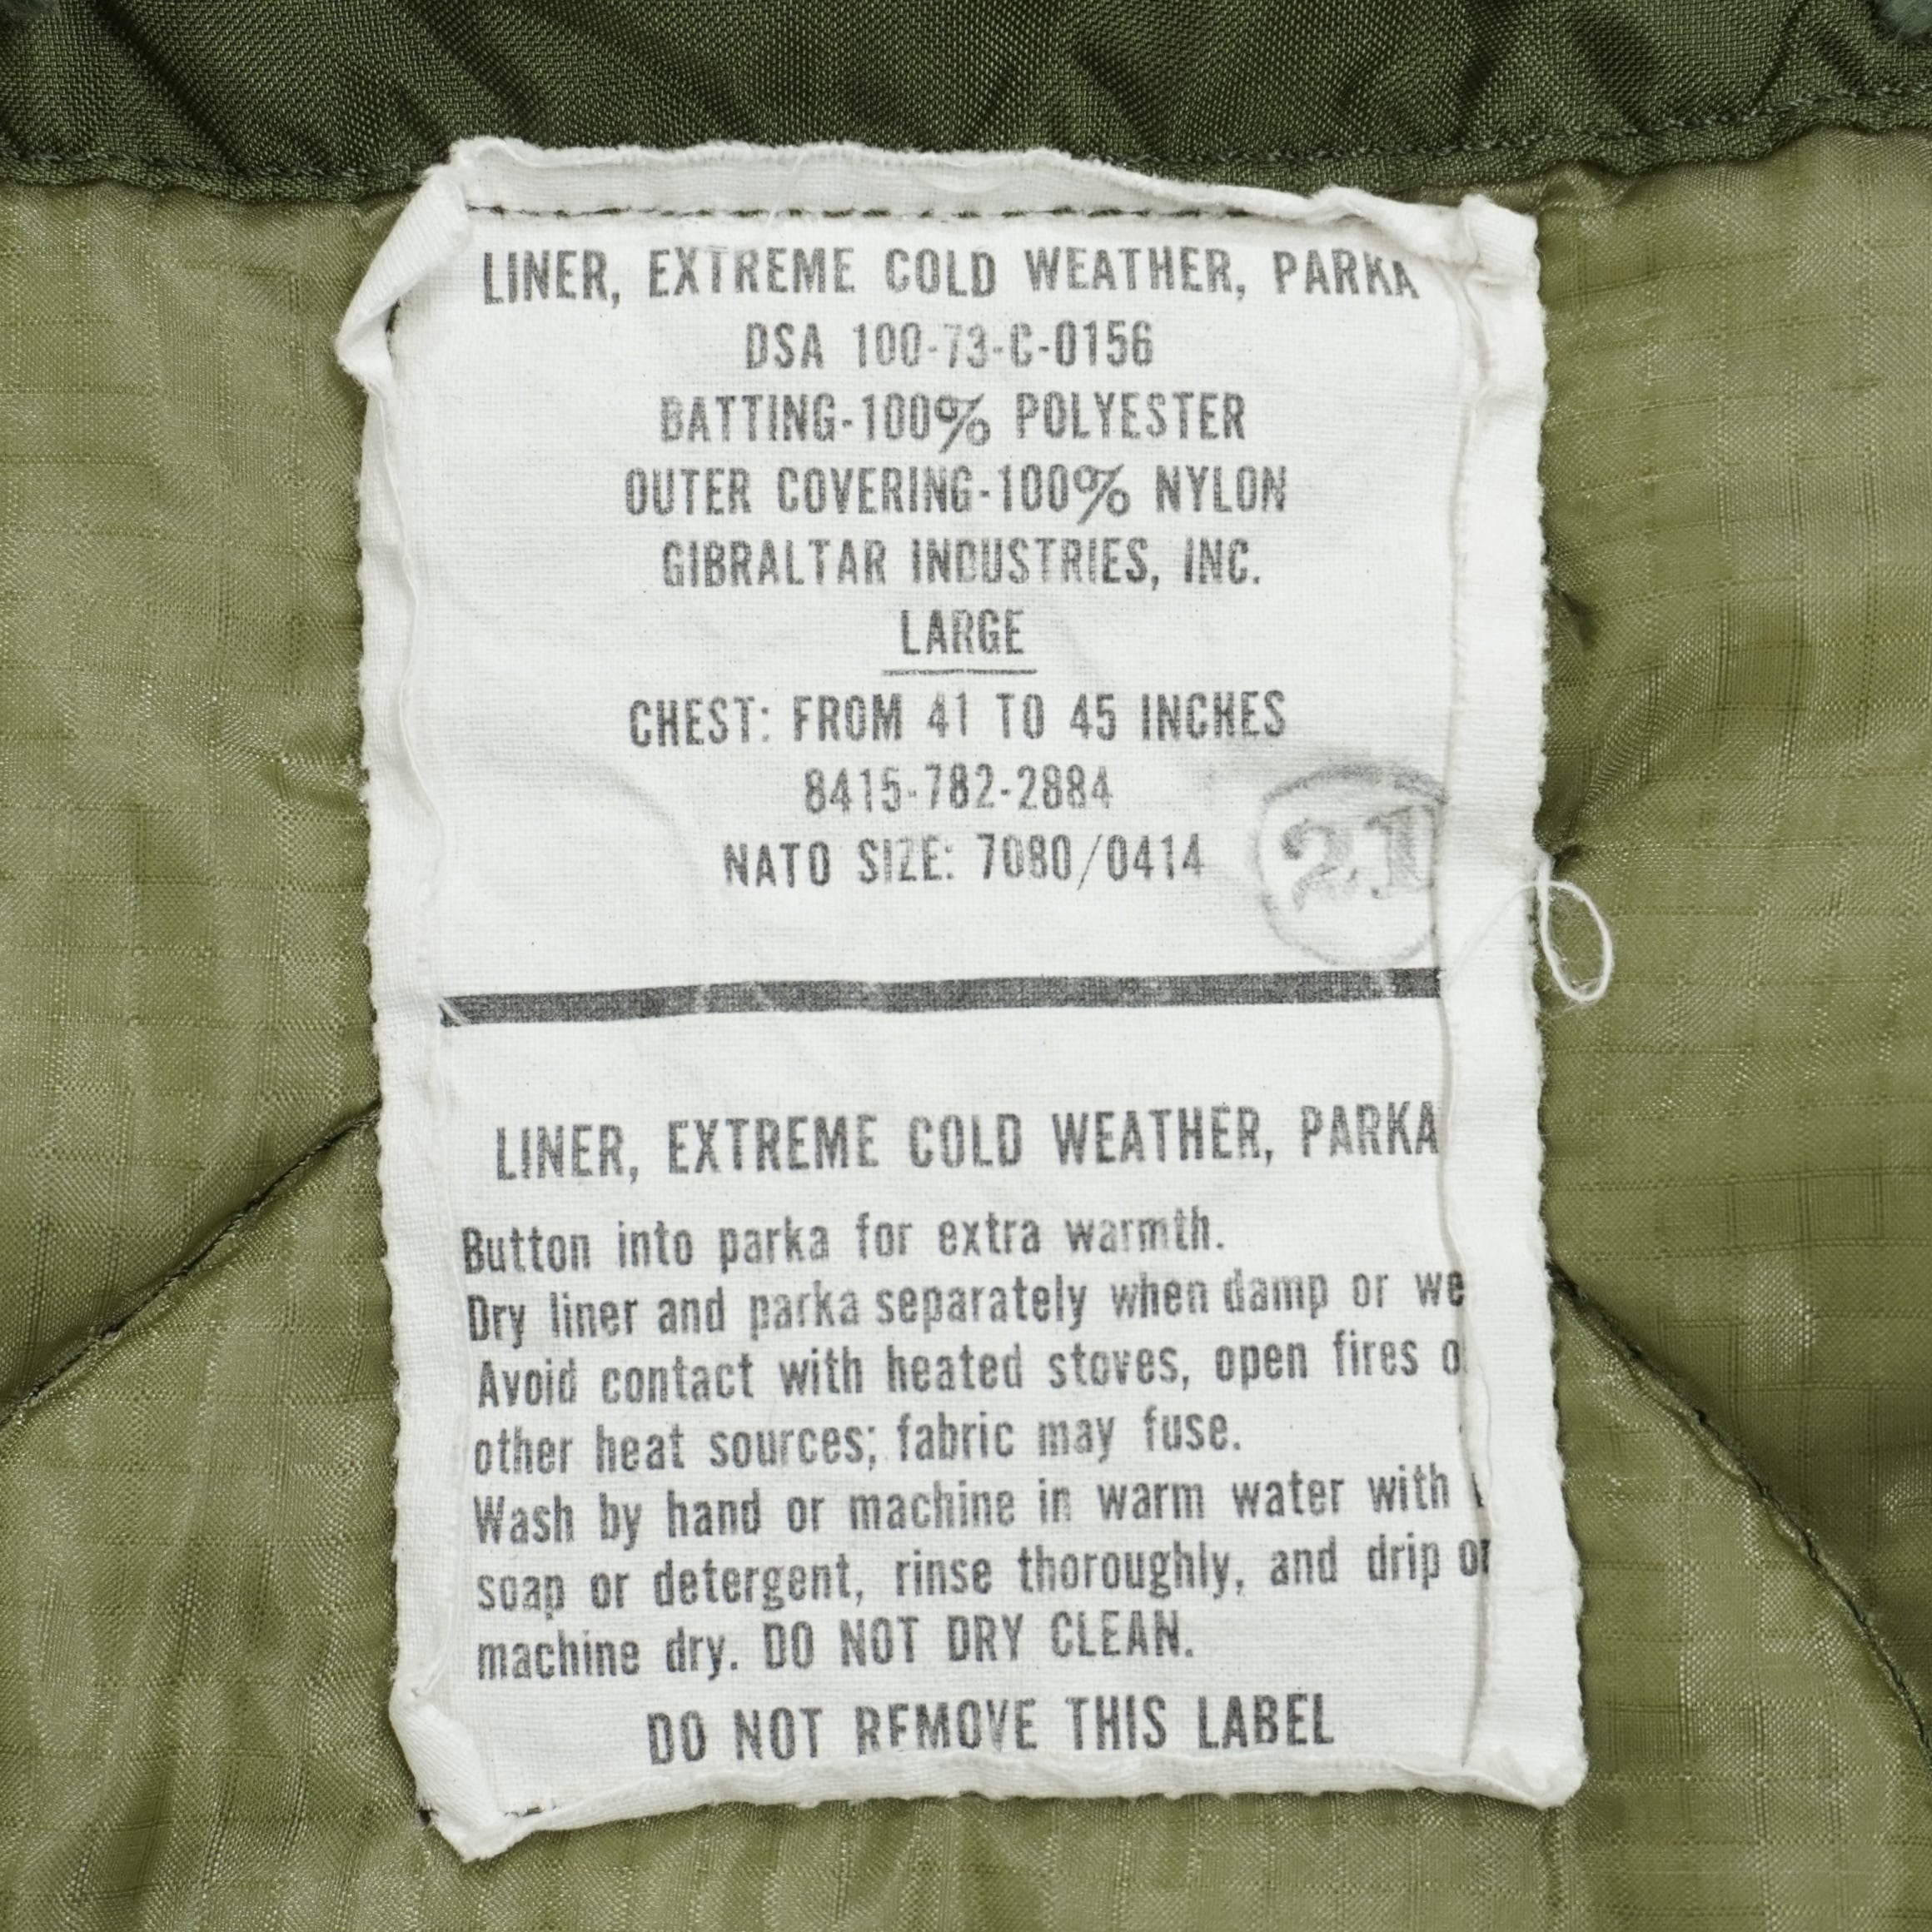 LINER, EXTREME COLD WEATHER, PARKA
DSA 100-73-C-0156
BATTING-100% POLYESTER
OUTER COVERING-100% NYLON
GIBRALTAR INDUSTRIES, INC.
LARGE
CHEST: FROM 41 TO 45 INCHES
8415-782-2884
NATO SIZE: 7080/0414
21
LINER, EXTREME COLD WEATHER, PARKA
Button into parka for extra warmth.
Dry liner and parka separately when damp or we
Avoid contact with heated stoves, open fires o
other heat sources; fabric may fuse.
Wash by hand or machine in warm water with
soap or detergent, rinse thoroughly, and drip or
machine dry. DO NOT DRY CLEAN.
DO NOT REMOVE THIS LABEL